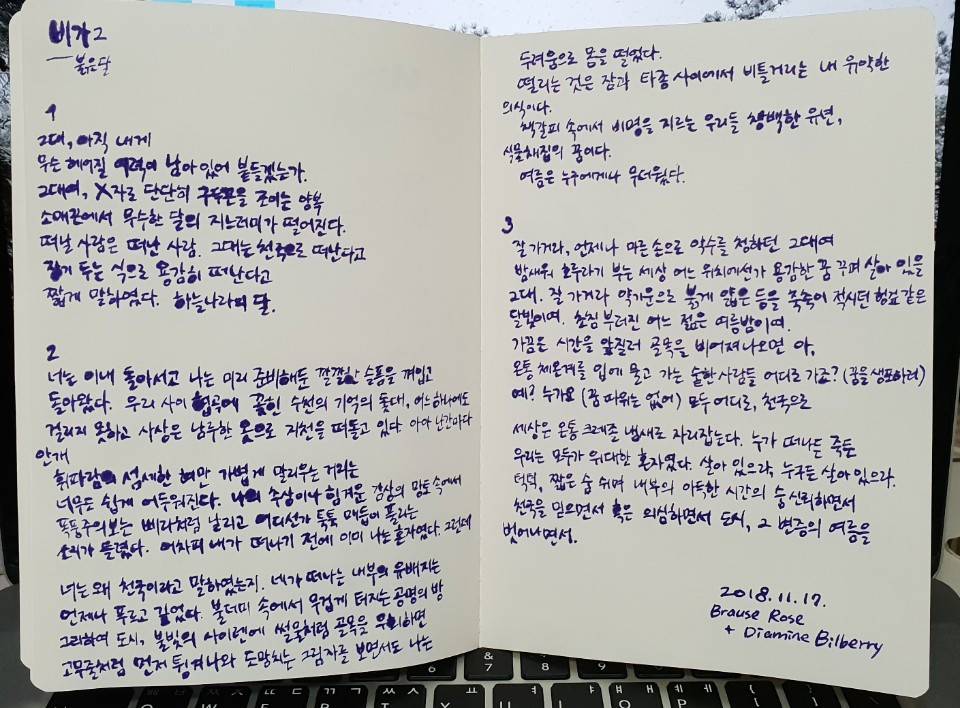 비가2
— 붉은 달
1
그대, 아직 내게
무슨 헤어질 여력이 남아 있어 붙들겠는가.
그대여, X자로 단단히 구두끈을 조이는 양복
소매끈에서 무수한 달의 지느러미가 떨어진다.
떠날 사람은 떠난 사람. 그대는 천국으로 떠난다고
장기 두는 식으로 용감히 떠난다고
짧게 말하였다. 하늘나라의 달.
2
너는 이내 돌아서고 나는 미리 준비해둔 깔깔한 슬픔을 껴입고
돌아왔다. 우리 사이 협곡에 꽂힌 수천의 기억의 돛대, 어느 하나에도
걸리지 못하고 사상은 남루한 옷으로 지천을 떠돌고 있다 아아 난간마다
안개
휘파람의 섬세한 혀만 가볍게 말리우는 거리는
너무도 쉽게 어두워진다. 나의 추상이나 힘겨운 감상의 망토 속에서
폭풍주의보는 삐라처럼 날리고 어디선가 툭툭 매듭이 풀리는
소리가 들렸다. 어차피 내가 떠나기 전에 이미 나는 혼자였다. 그런데
너는 왜 천국이라고 말하였는지. 네가 떠나는 내부의 유배지는
언제나 푸르고 깊었다. 불더미 속에서 무겁게 터지는 공명의 방
그리하여 도시, 불빛의 사이렌에 썰물처럼 골목을 우회하면
고무줄처럼 먼저 튕겨나와 도망치는 그림자를 보면서도 나는
두려움으로 몸을 떨었다.
떨리는 것은 잠과 타종 사이에서 비틀거리는 내 유약한
의식이다.
책갈피 속에서 비명을 지르는 우리들 창백한 유년,
식물채집의 꿈이다.
여름은 누구에게나 무더웠다.
3
잘 가거라, 언제나 마른 손으로 악수를 청하던 그대여
밤새워 호루라기 부는 세상 어느 위치에선가 용감한 꿈 꾸며 살아 있을
그대. 잘 가거라 약기운으로 붉게 얇은 등을 축축이 적시던 헝겊 같은
달빛이여. 초침 부러진 어느 젊은 여름밤이여.
가끔은 시간을 앞질러 골목을 비어져나오면 아,
온통 체온계를 입에 물고 가는 숱한 사람들 어디로 가죠? (꿈을 생포하러)
예? 누가요 (꿈 따위는 없어) 모두 어디로, 천국으로
세상은 온통 크레졸 냄새로 자리잡는다. 누가 떠나든 죽든
우리는 모두가 위대한 혼자였다. 살아 있으라, 누구든 살아 있으라.
턱턱, 짧은 숨 쉬며 내부의 아득한 시간의 숨 신뢰하면서
천국을 믿으면서 혹은 의심하면서 도시, 그 변증의 여름을
벗어나면서.
2018.11.17.
Brause Rose
+ Diamine Bilberry